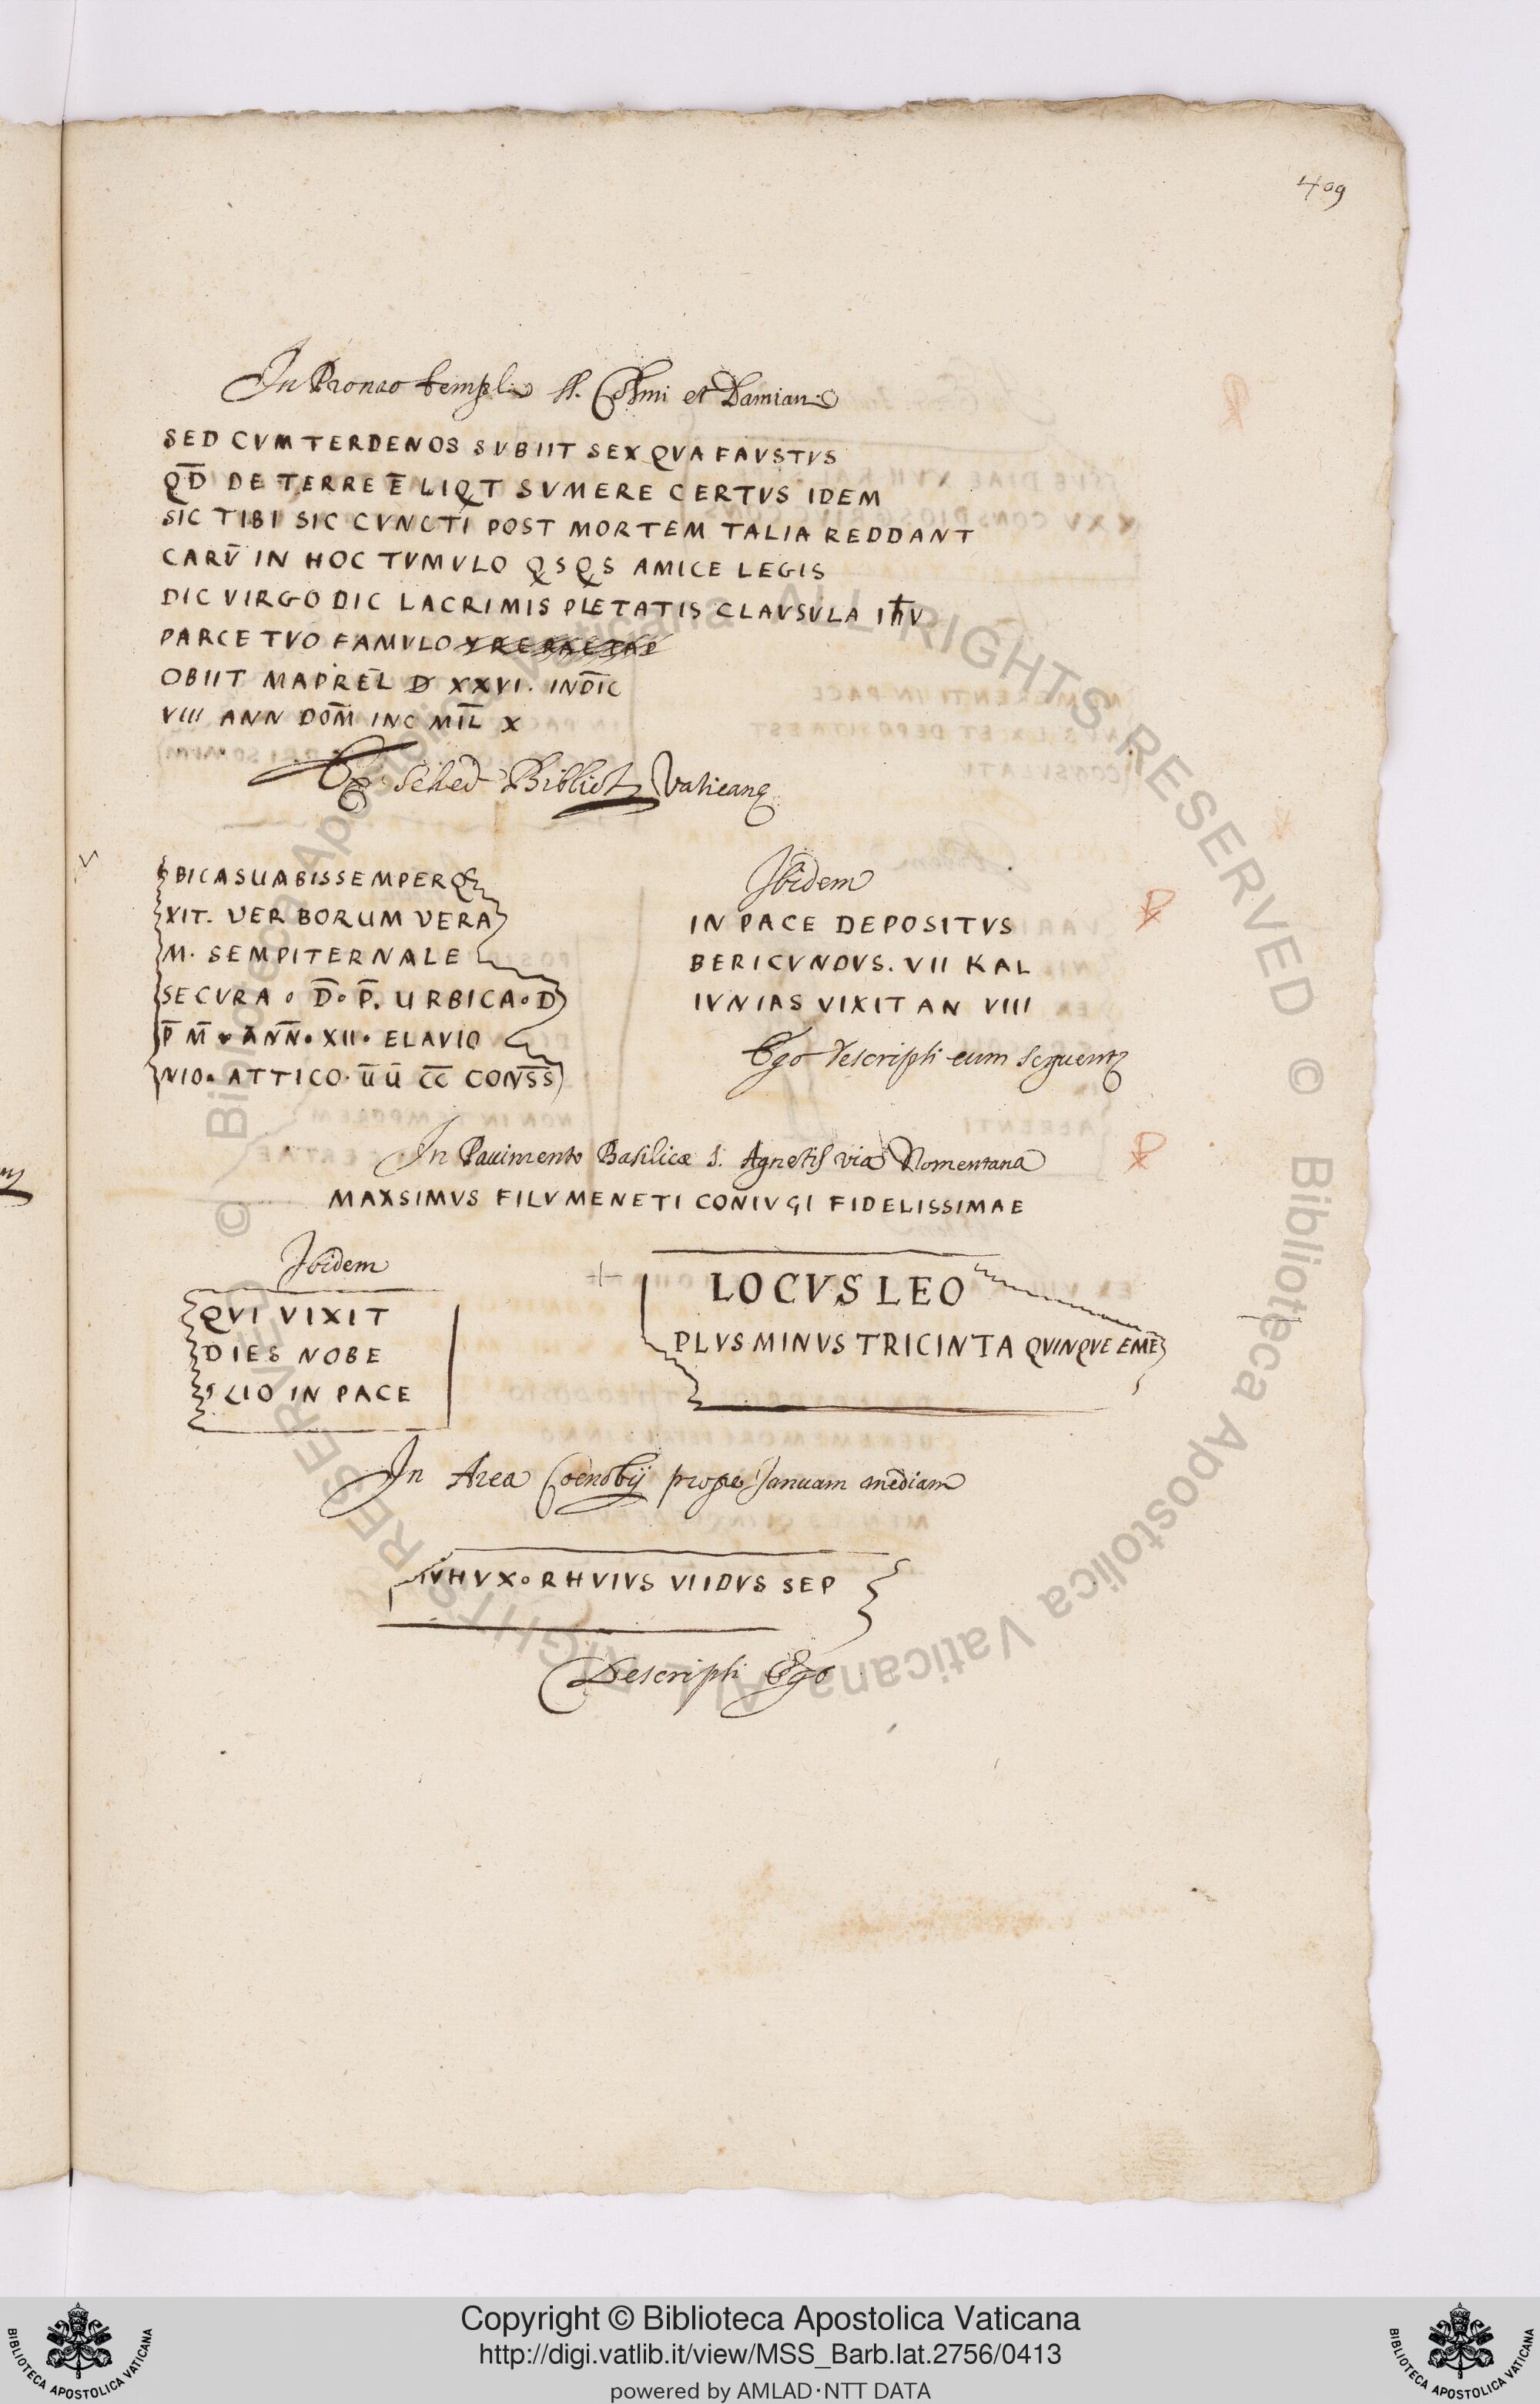 409
In Pronao templi SS. Cosmi et Damiani
SED CVM TERDENOS SVBIIT SEX QVA FAVSTVS
QD̄ DE TERRE Ē LIQT SVMERE CERTVS IDEM
SIC TIBI SIC CVNCTI POST MORTEM TALIA REDDANT
CARV̄ IN HOC TVMVLO QSQS AMICE LEGIS
DIC VIRGO DIC LACRIMIS PLETATIS CLAVSULA IħV
PARCE TVO FAMVLO
OBIIT MAPREL D XXVI. INDIC
VIII ANN DOM̄ INC MIL̄ X
Ex Sched Bibliot Vaticanę
BICASUABISSEMPERQ
XIT. VERBORUM VERA
M. SEMPITERNALE
SECVRA • D̄ • P̄. URBICA • D
P̄ M̄ • ANN̄ • XII • ELAVIO
NIO • ATTICO • ŪŪ C̄C̄ CONS̄S̄
Ibidem
IN PACE DEPOSITVS
BERICVNDVS. VII KAL
IVNIAS VIXIT AN VIII
Ego descripsi cum sequenti
In Pauimento Basilicæ S. Agnetis via Nomentana
MAXSIMVS FILVMENETI CONIVGI FIDELISSIMAE
Ibidem
QVI VIXIT
DIES NOBE
LIO IN PACE
LOCVS LEO
PLVS MINVS TRICINTA QVINQVE EME
In Area Coenobij prope Januam mediam
HVX•RHVIVS VIIDVS SEP
Descripsi Ego
© Biblioteca Apostolica Vaticana ALL RIGHTS RESERVED © Biblioteca Apostolica Vaticana ALL RIGHTS RESERVED
Copyright © Biblioteca Apostolica Vaticana
http://digi.vatlib.it/view/MSS_Barb.lat.2756/0413
powered by AMLAD·NTT DATA
BIBLIOTECA APOSTOLICA VATICANA
BIBLIOTECA APOSTOLICA VATICANA